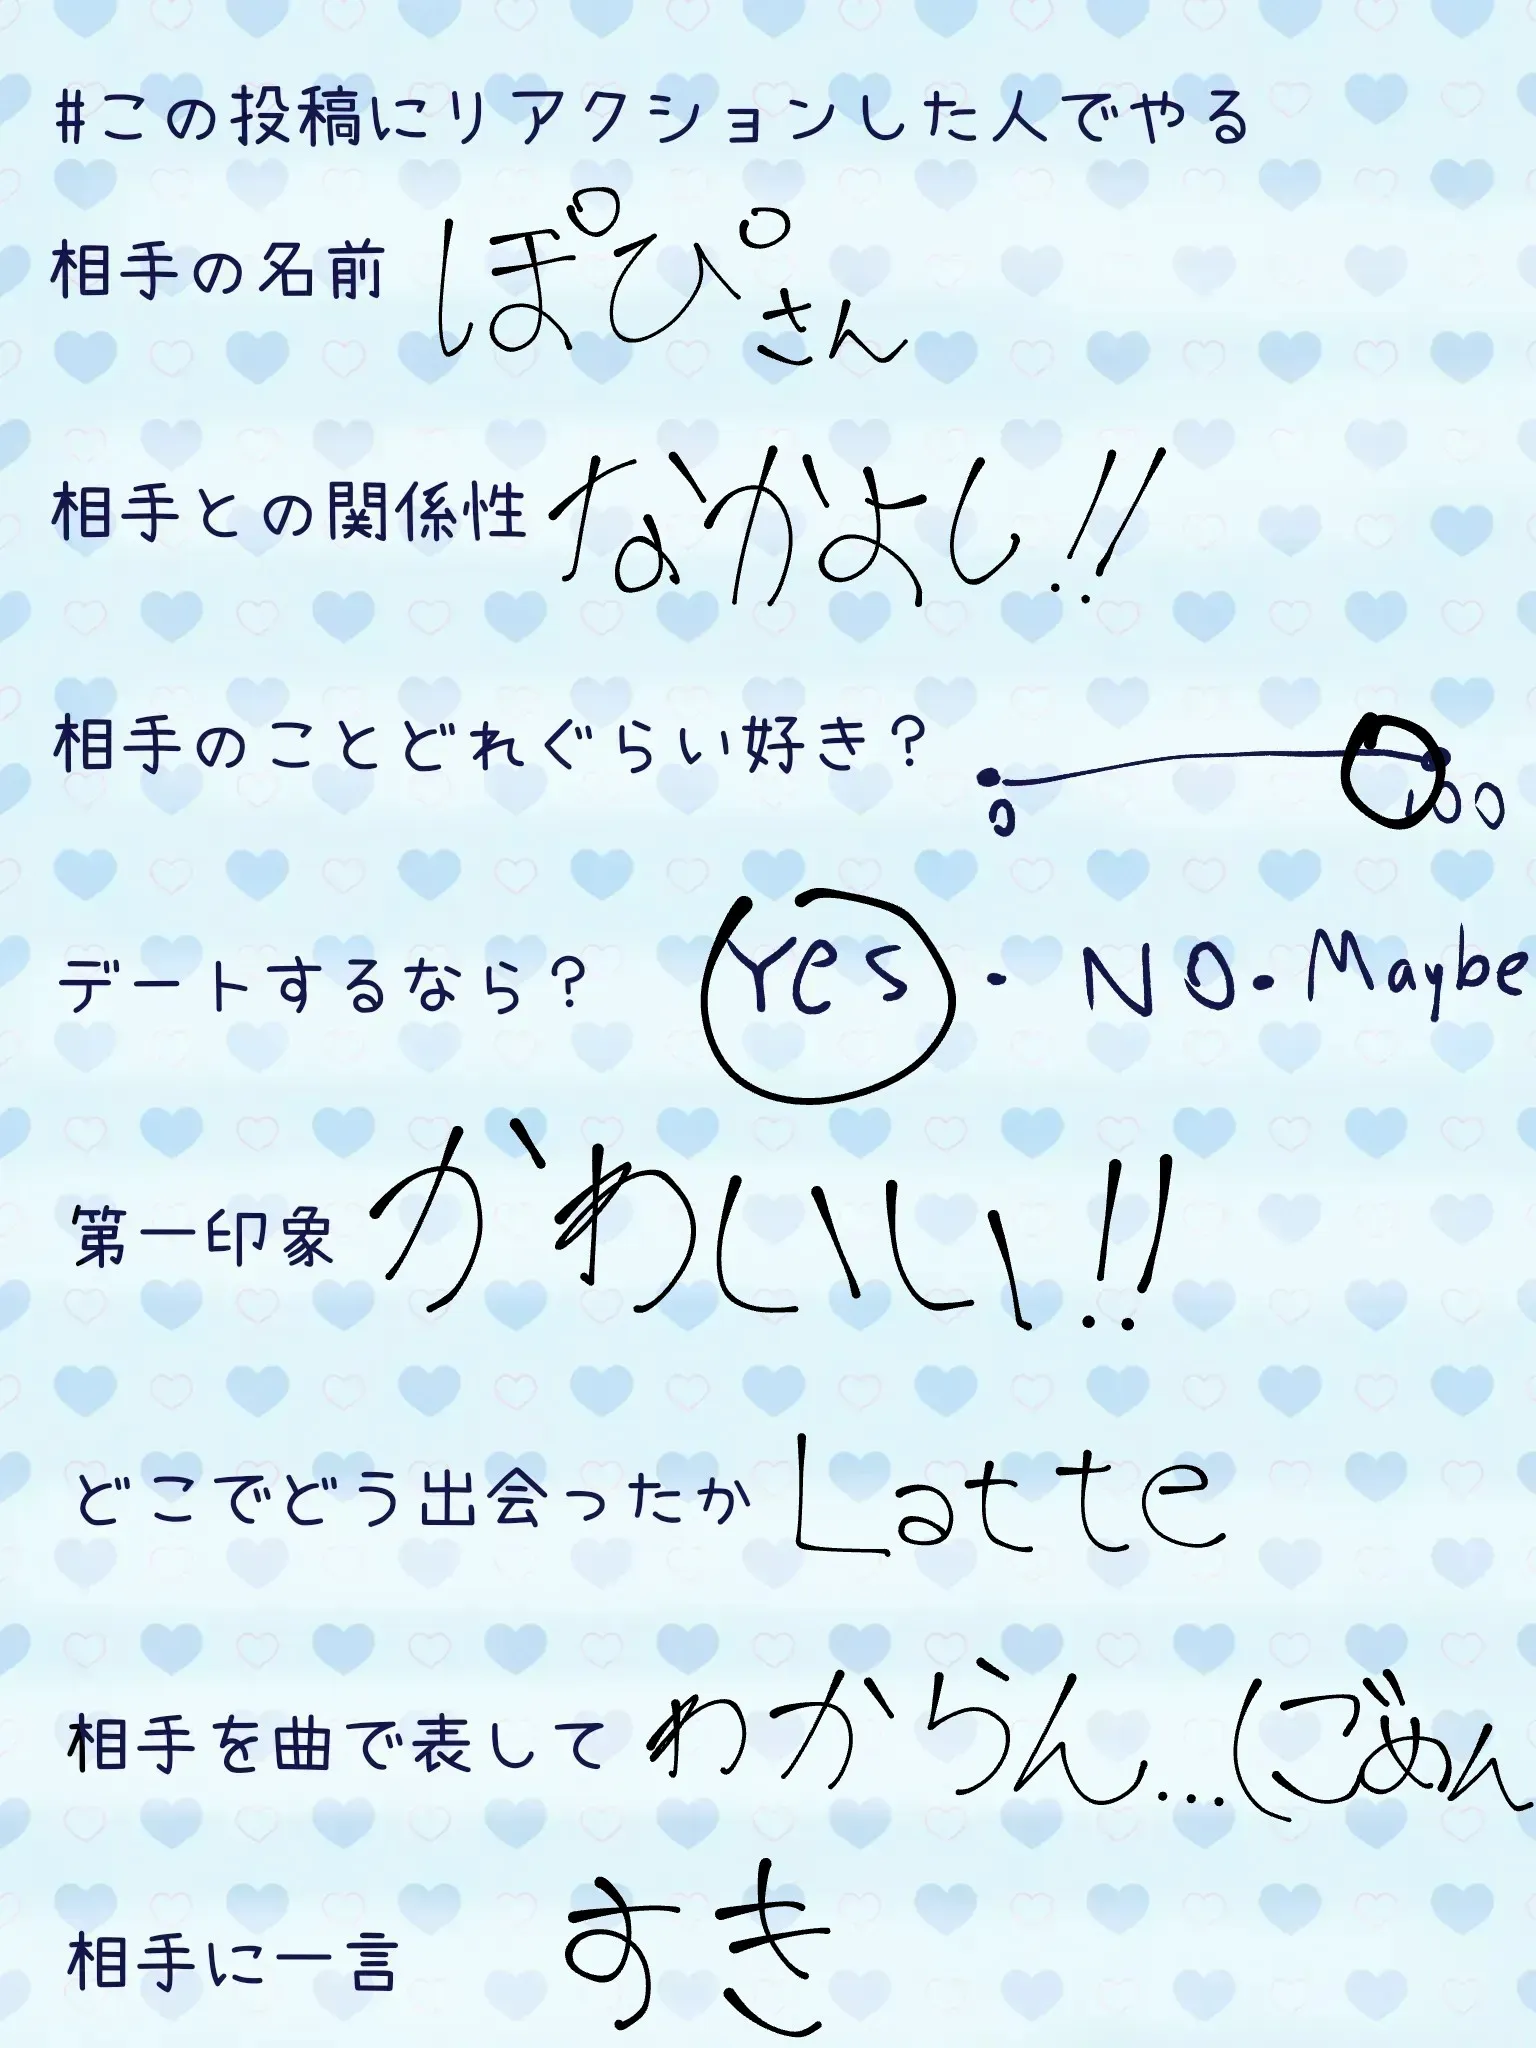 #この投稿にリアクションした人でやる
相手の名前 ぽぴさん
相手との関係性 なかよし!!
相手のことどれぐらい好き? 0 100
デートするなら? Yes・NO・Maybe
第一印象 かわいい!!
どこでどう出会ったか Latte
相手を曲で表して わからん...(ごめん
相手に一言 すき